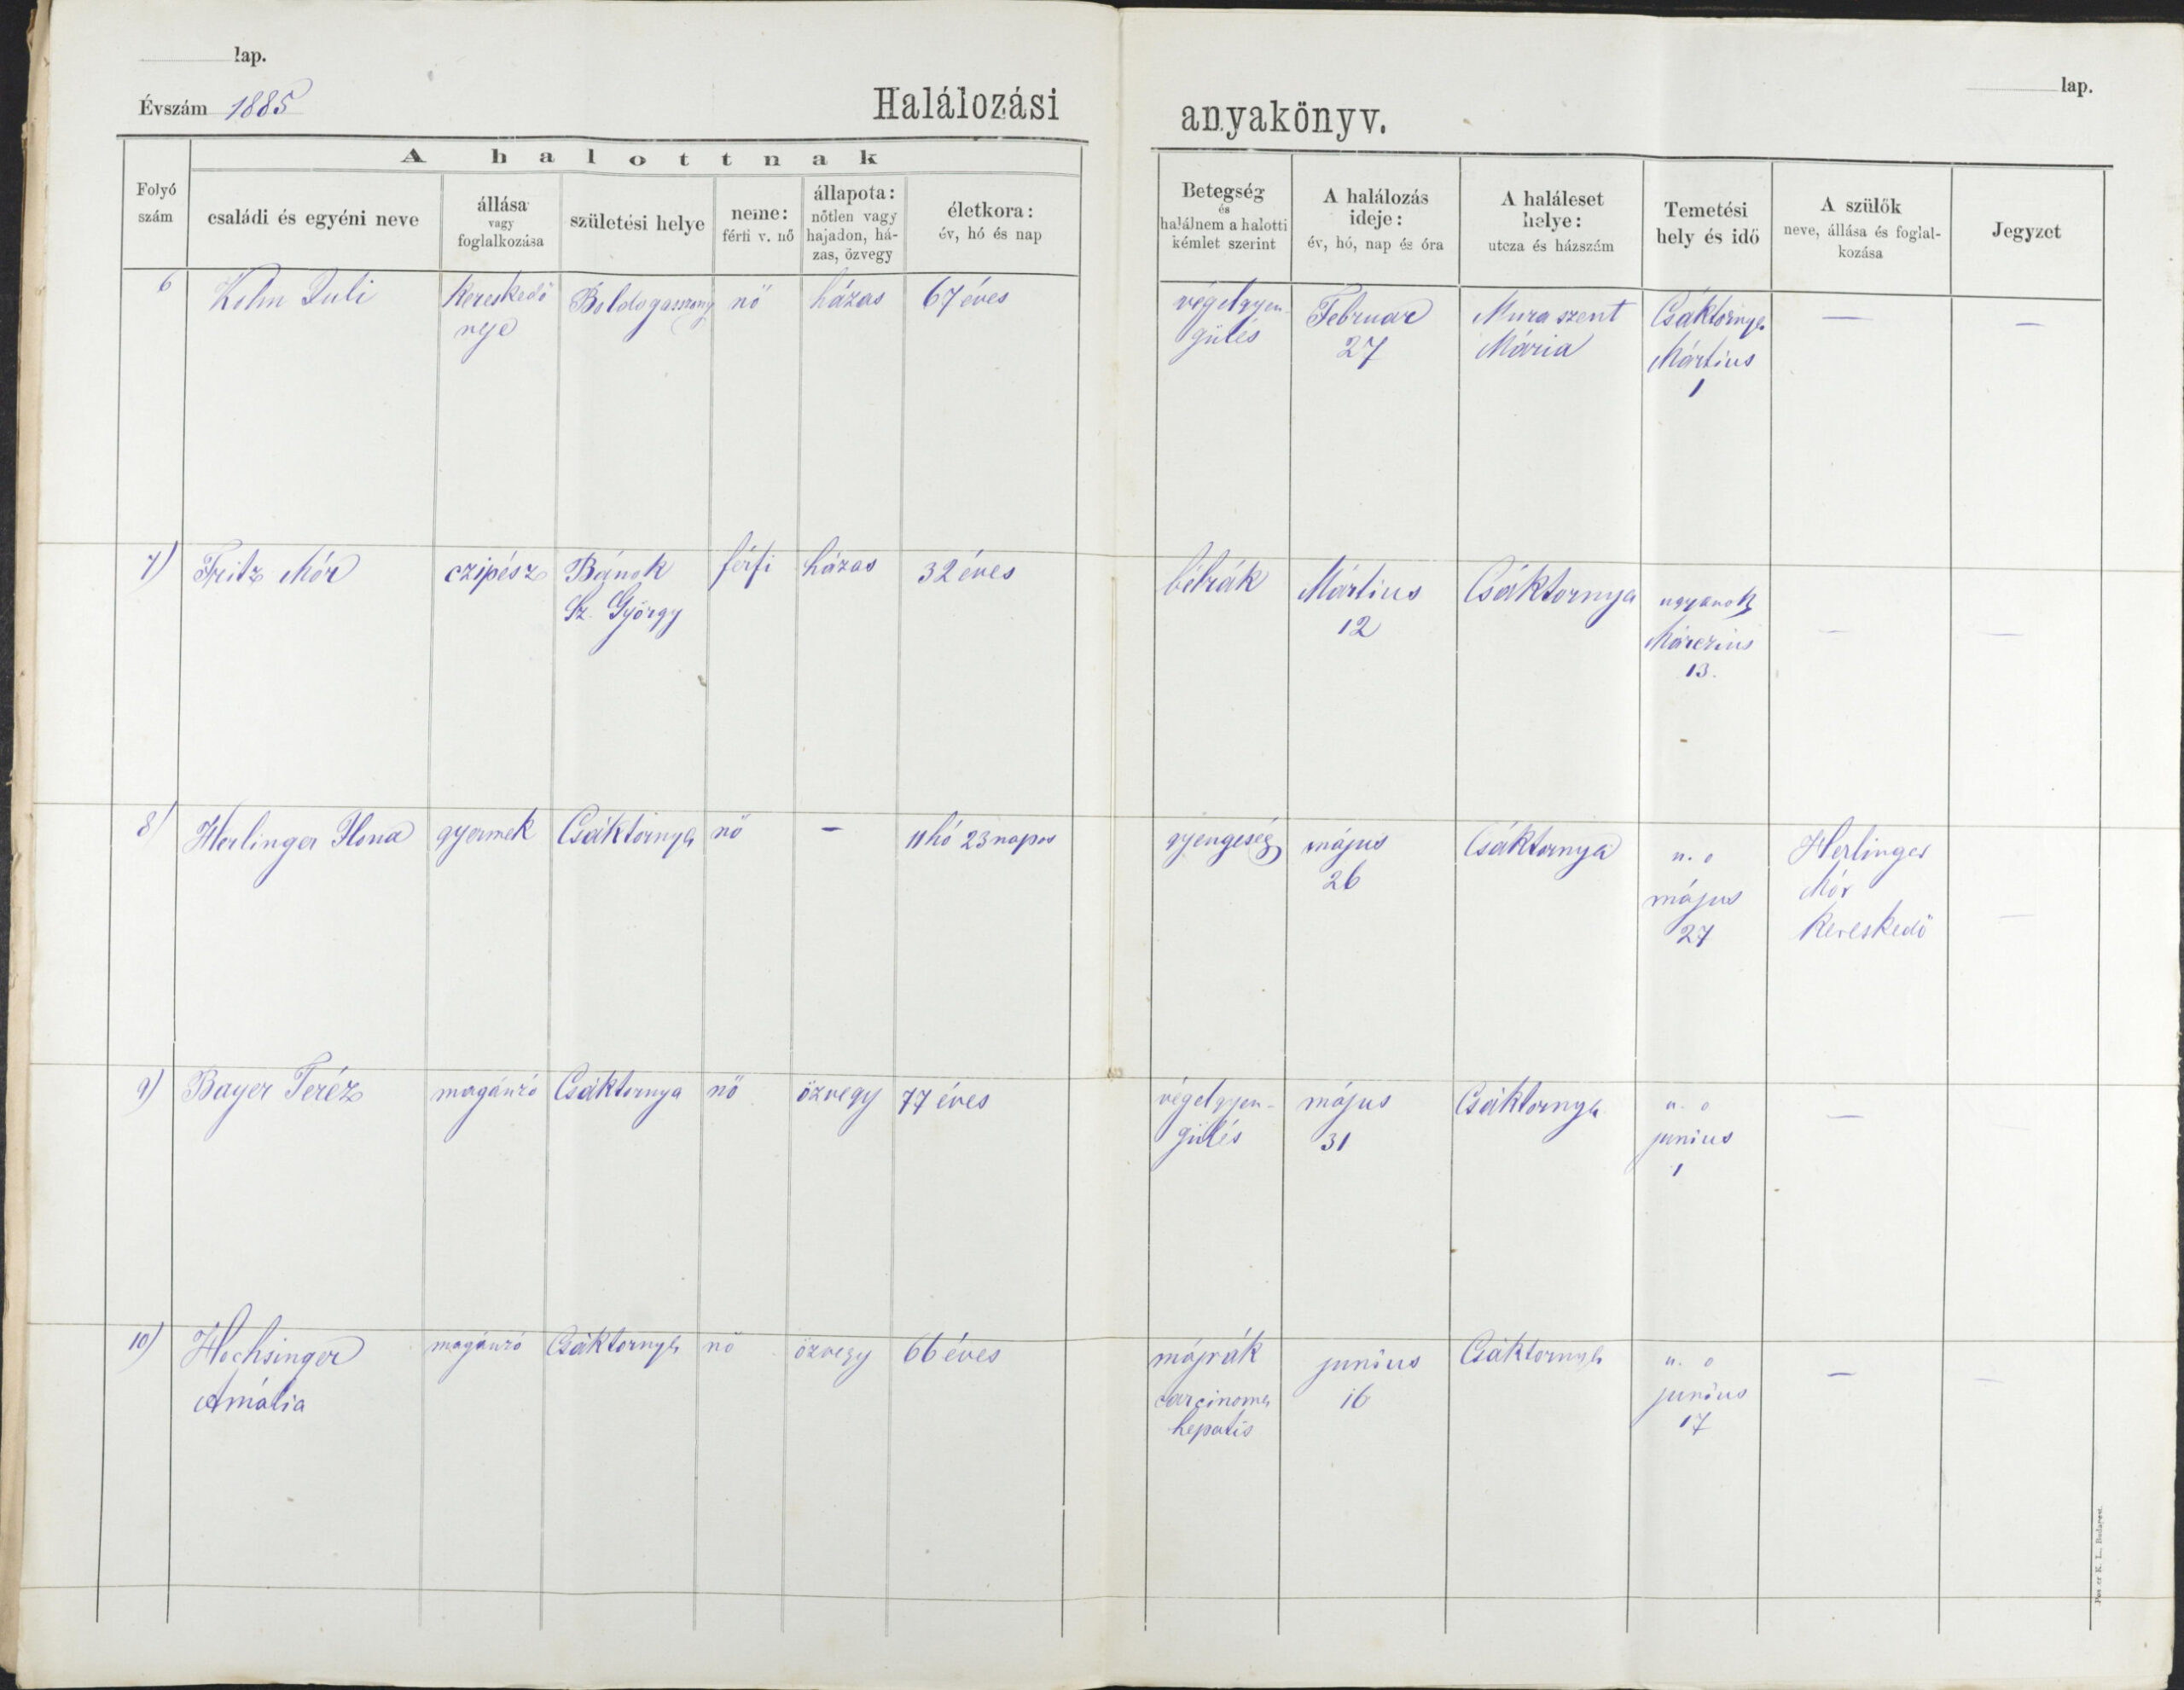 lap.
Évszám 1885
Halálozási anyakönyv.
lap.
A halottnak
Folyó szám
családi és egyéni neve
állása vagy foglalkozása
születési helye
neme: férfi v. nő
állapota: nőtlen vagy hajadon, há-zas, özvegy
életkora: év, hó és nap
Betegség és halálnem a halotti kémlet szerint
A halálozás ideje: év, hó, nap és óra
A haláleset helye: utcza és házszám
Temetési hely és idő
A szülők neve, állása és foglal-kozása
Jegyzet
6 Kohn Juli kereskedő neje Boldogasszony nő házas 67 éves végelgyen-gülés Februar 27 Mura szent Mária Csáktornya Mártius 1 — —
7) Fritz Mór czipész Bánok Sz. György férfi házas 32 éves bélrák Mártius 12 Csáktornya ugyanott Márczius 13. — —
8) Herlinger Ilona gyermek Csáktornya nő — 11 hó 23 napos gyengeség május 26 Csáktornya u. o május 27 Herlinger Mór kereskedő —
9) Bayer Teréz magánzó Csáktornya nő özvegy 77 éves végelgyen-gülés május 31 Csáktornya u. o junius 1 — —
10) Hochsinger Amália magánzó Csáktornya nő özvegy 66 éves májrák carcinoma hepatis junius 16 Csáktornya u. o junius 17 — —